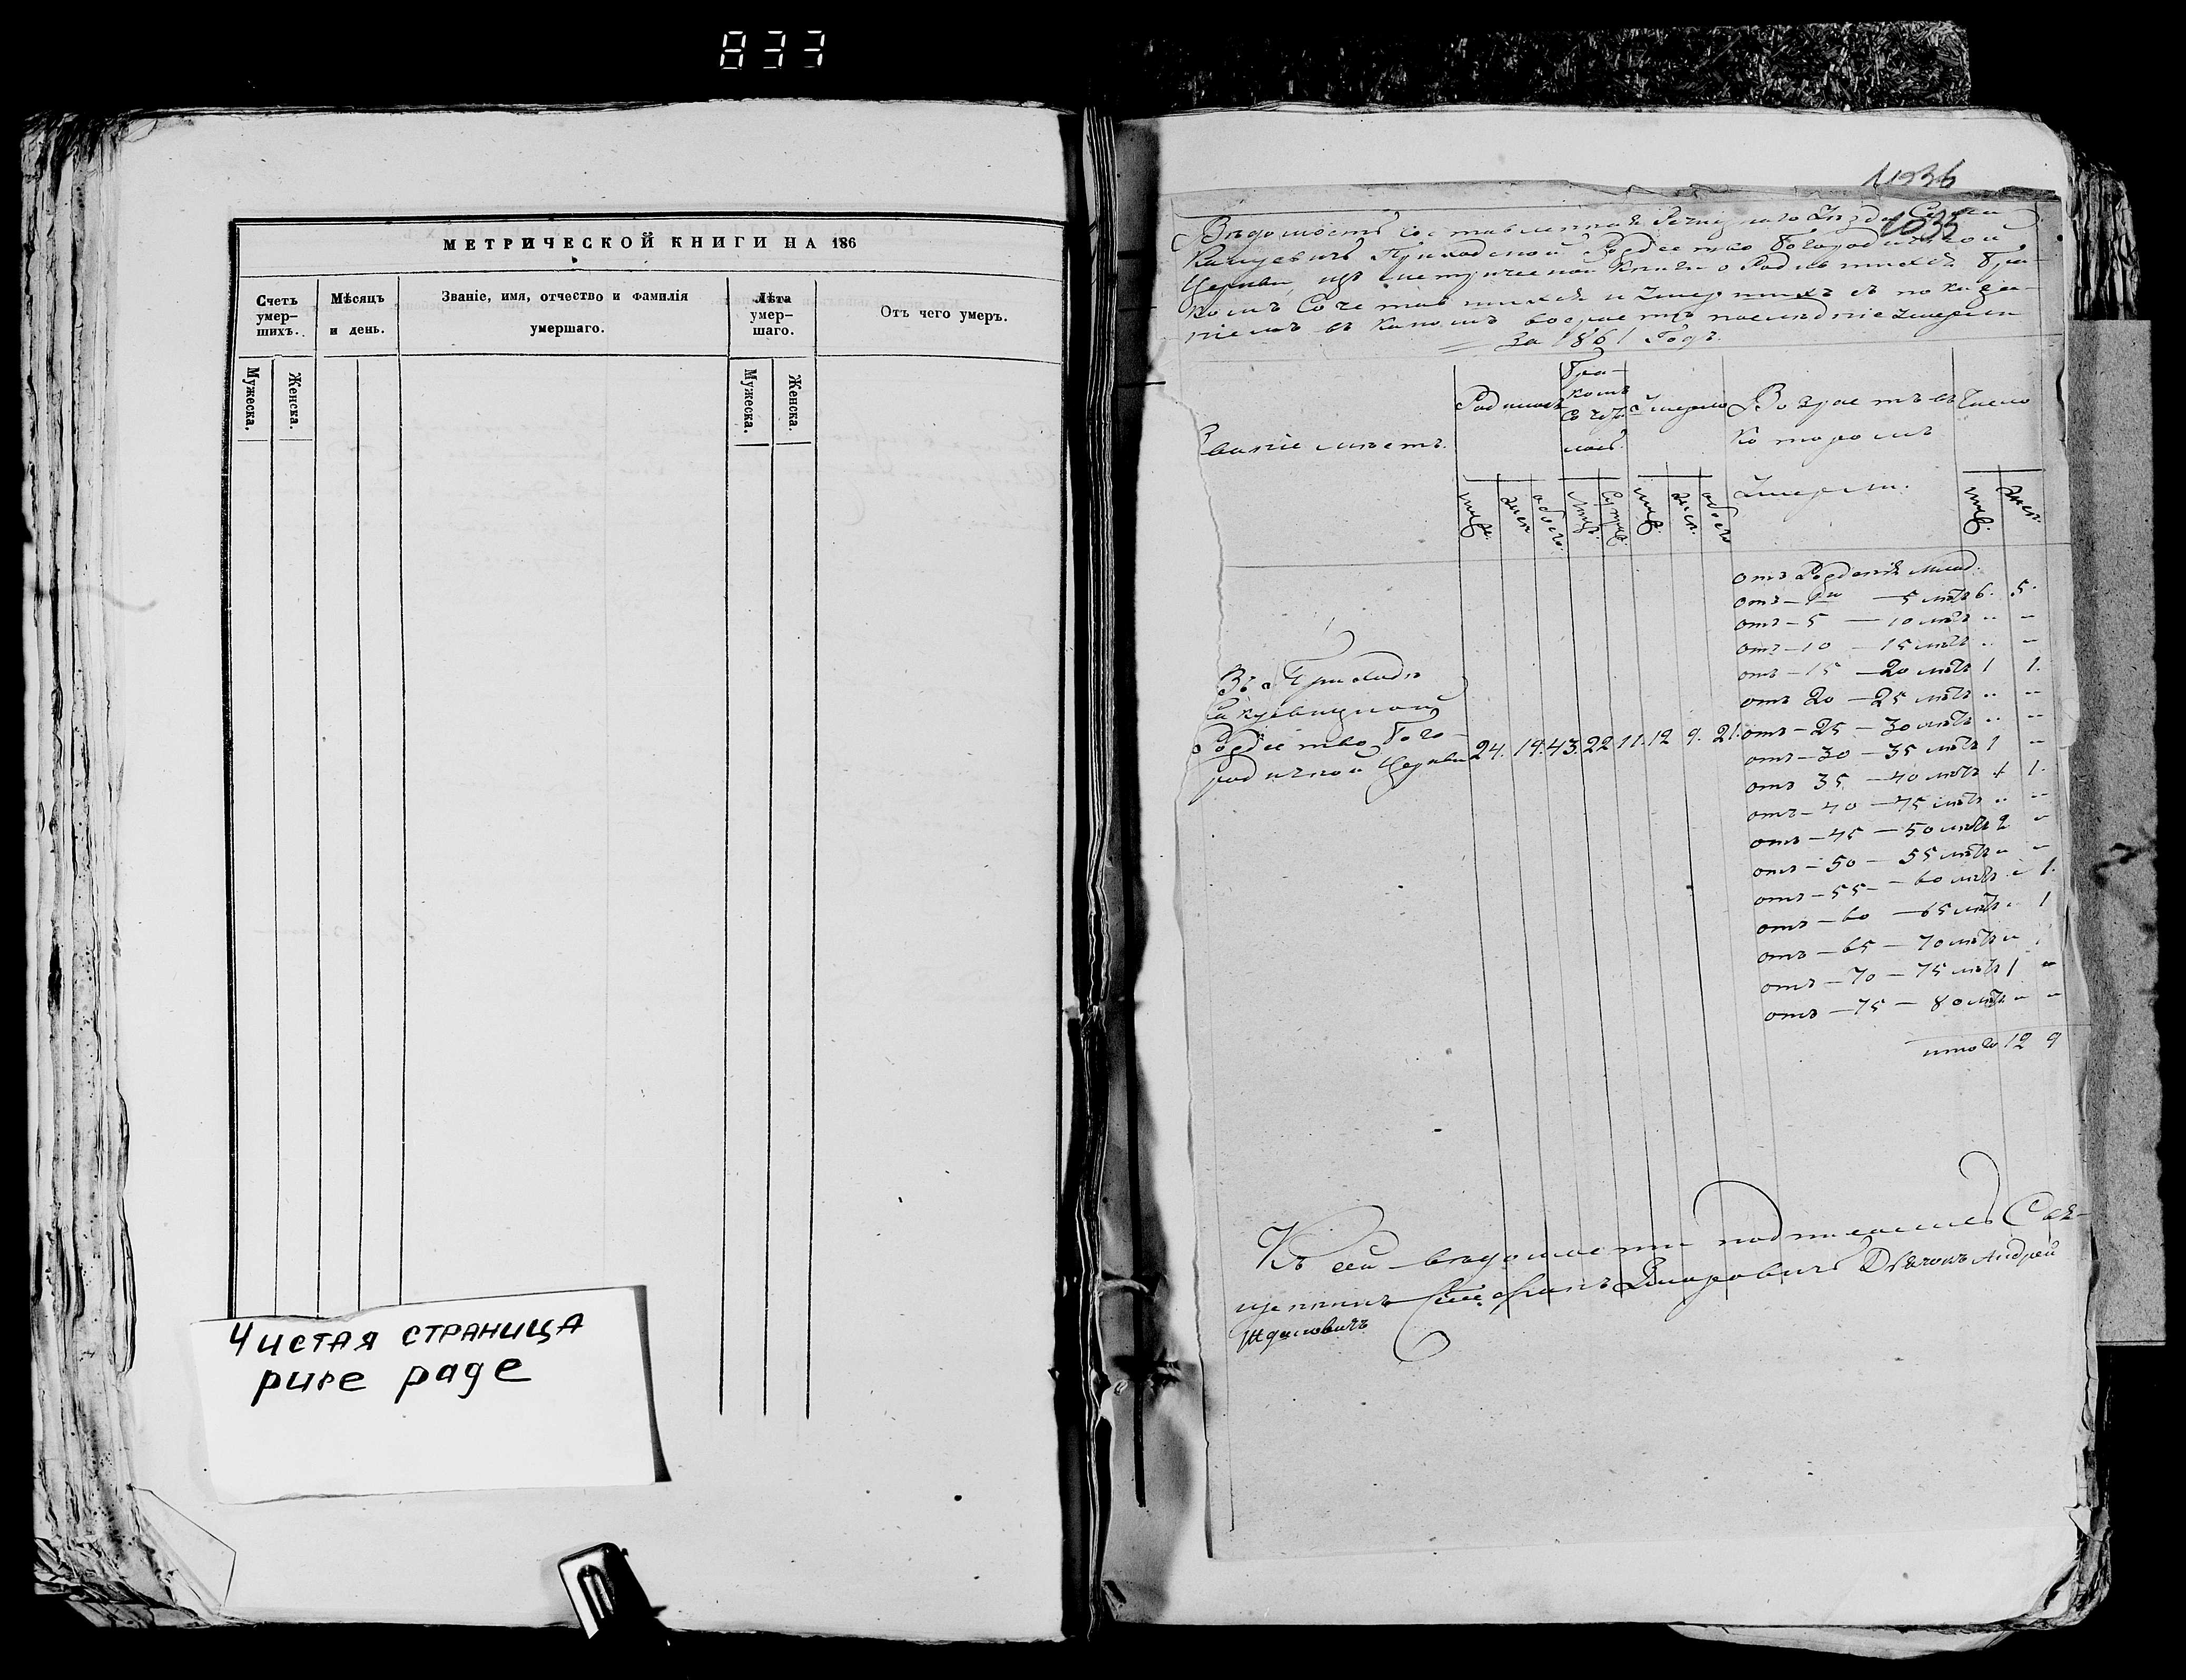 833
МЕТРИЧЕСКОЙ КНИГИ НА 186
Счетъ умер-шихъ.
Мѣсяцъ и день.
Званіе, имя, отчество и фамилія умершаго.
Лѣта умер-шаго.
Отъ чего умеръ.
Мужеска.
Женска.
Мужеска.
Женска.
Чистая страница
pure page
1036
1035
Вѣдомость составленная Речицкаго Уѣзда Села
Приходской Рождество Богородичной
Церкви, изъ метрической Книги о Родившихся Бра-
комъ Сочетавшихся и Умершихъ съ показа-
ніемъ въ какомъ возрастѣ последніе Умерли
За 1861 Годъ.
Званіе мѣстъ.
Родилось
Бра-
комъ
Соче-
Умерло
Возрастъ въ
Которомъ
Умерли.
Число
муж.
жен.
обоего
муж.
жен.
обоего
муж.
жен.
отъ Рожденія
отъ — — 5 лѣтъ 6. 5.
отъ — 5 — 10 лѣтъ " "
отъ — 10 — 15 лѣтъ " "
отъ — 15 — 20 лѣтъ 1 1.
отъ 20 — 25 лѣтъ " "
отъ — 25 — 30 лѣтъ " "
отъ — 30 — 35 лѣтъ 1 "
отъ 35 — 40 лѣтъ 1 1.
отъ — 40 — 45 лѣтъ " "
отъ — 45 — 50 лѣтъ 2 "
отъ — 50 — 55 лѣтъ " "
отъ — 55 — 60 лѣтъ " 1.
отъ — 60 — 65 лѣтъ " 1
отъ — 65 — 70 лѣтъ "
отъ — 70 — 75 лѣтъ 1 "
отъ — 75 — 80 лѣтъ " "
итого 12 9
Въ Приходѣ
Рождество Бого-
родичной Церкви 24. 19. 43. 22 11. 12 9. 21.
Къ сей вѣдомости подписались Свя-
щенникъ Стефанъ Дьячокъ Андрей